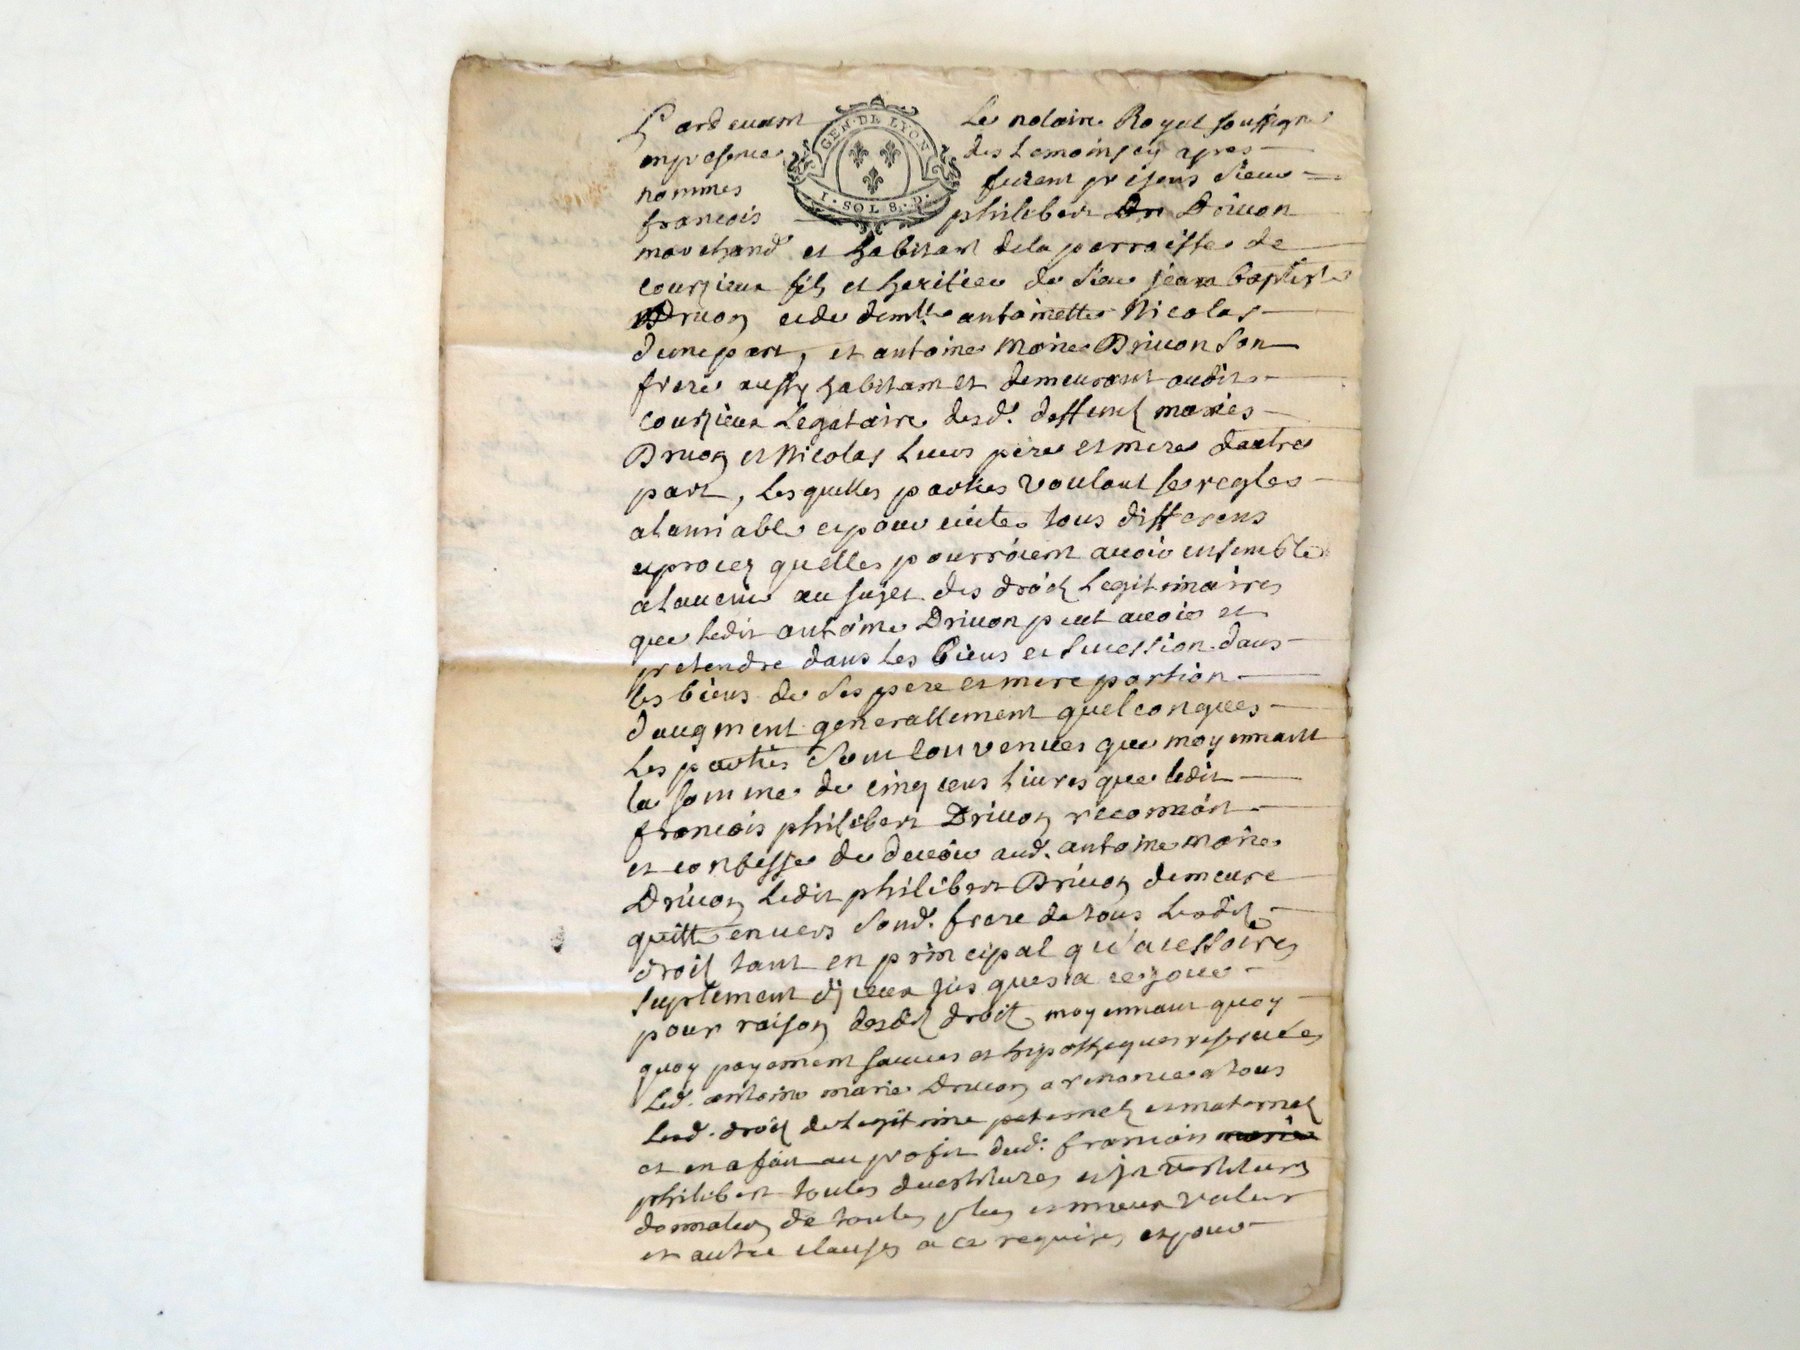 Pardevant Le notaire Royal soussigne
GEN. DE LYON
en presence des temoins cy apres
nommes furent presens Sieur
I. SOL 8. D.
francois philibert Drivon
marchand et habitant de la parroisse de
courzieux fils et heritier de Sieur jean baptiste
Drivon et de demlle antoinette Nicolas
dune part, et antoine marie Drivon Son
frere aussy habitant et demeurant audit
courzieux Legataire desd. deffunts mariés
Drivon et Nicolas Leurs pere et mere dautre
part, Lesquelles parties voulant se regler
a lamiable et pour eviter tous differens
et procez quelles pourroient avoir ensemble
a lavenir au sujet des droits Legitimaires
que ledit antoine Drivon peut avoir et
pretendre dans les biens et Sucession dans
les biens de Ses pere et mere portion
daugment generallement quelconques
Les parties Sont Convenues que moyennant
la somme de cinq cens Livres que ledit
francois philibert Drivon reconnoit
et confesse de devoir aud. antoine marie
Drivon Ledit philibert Drivon demeure
quitte envers Sond. frere de tous Lesdits
droits tant en principal qu'acessoires
suplement diceux jusques a ce jour
pour raison desdits droits moyennant quoy
quoy payement sauves et hypotheques reservées
Led. antoine marie Drivon a renoncé a tous
Lesd. droits de Legitime paternels et maternels
et en a fait au profit dud. francois marie
philibert toutes devestitures et investitures
donnation de toutes plus et mieux valeur
et autre clauses a ce requises et pour